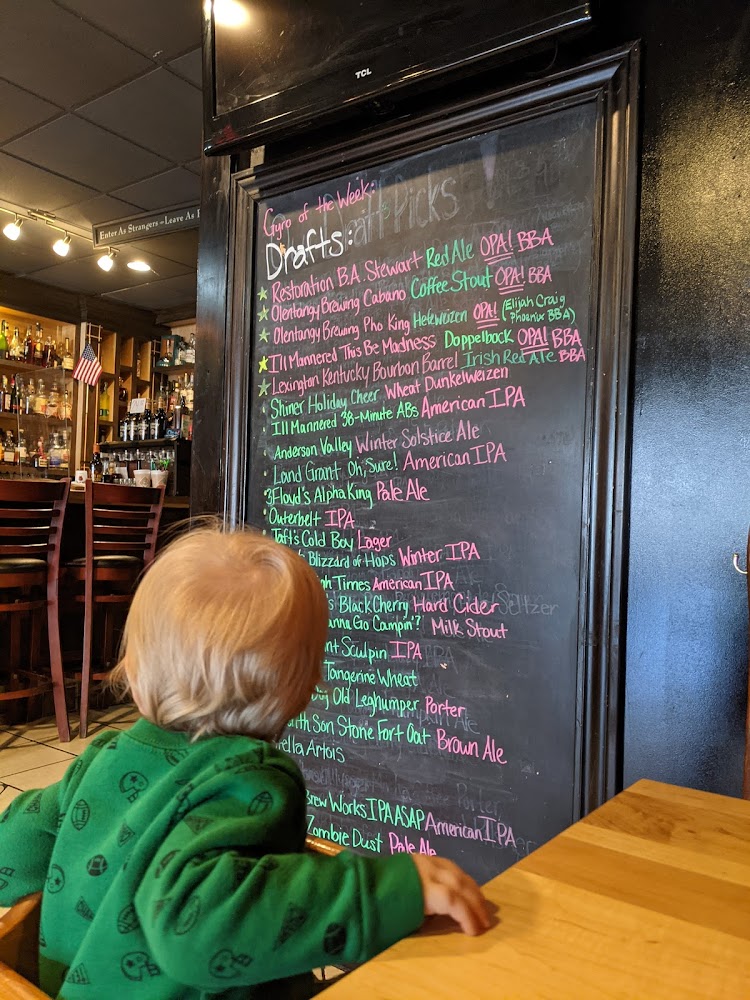 TCL
Enter As Strangers - Leave As
Gyro of the Week:
Drafts:
aft Picks
Restoration B.A. Stewart Red Ale OPA! BBA
Olentangy Brewing Cabano Coffee Stout OPA! BBA
Olentangy Brewing Pho King Hefeweizen OPA! (Elijah Craig Phoenix BBA)
Ill Mannered This Be Madness Doppelbock OPA! BBA
Lexington Kentucky Bourbon Barrel Irish Red Ale BBA
Shiner Holiday Cheer Wheat Dunkelweizen
Ill Mannered 38-Minute ABs American IPA
Anderson Valley Winter Solstice Ale
Land Grant Oh, Sure! American IPA
3Floyd's Alpha King Pale Ale
Outerbelt IPA
Taft's Cold Boy Lager
Blizzard of Hops Winter IPA
gh Times American IPA
s Black Cherry Hard Cider
anna Go Campin'? Milk Stout
nt Sculpin IPA
Tangerine Wheat
Old Leghumper Porter
th Son Stone Fort Oat Brown Ale
ella Artois
Brew Works IPA ASAP American IPA
Zombie Dust Pale Ale